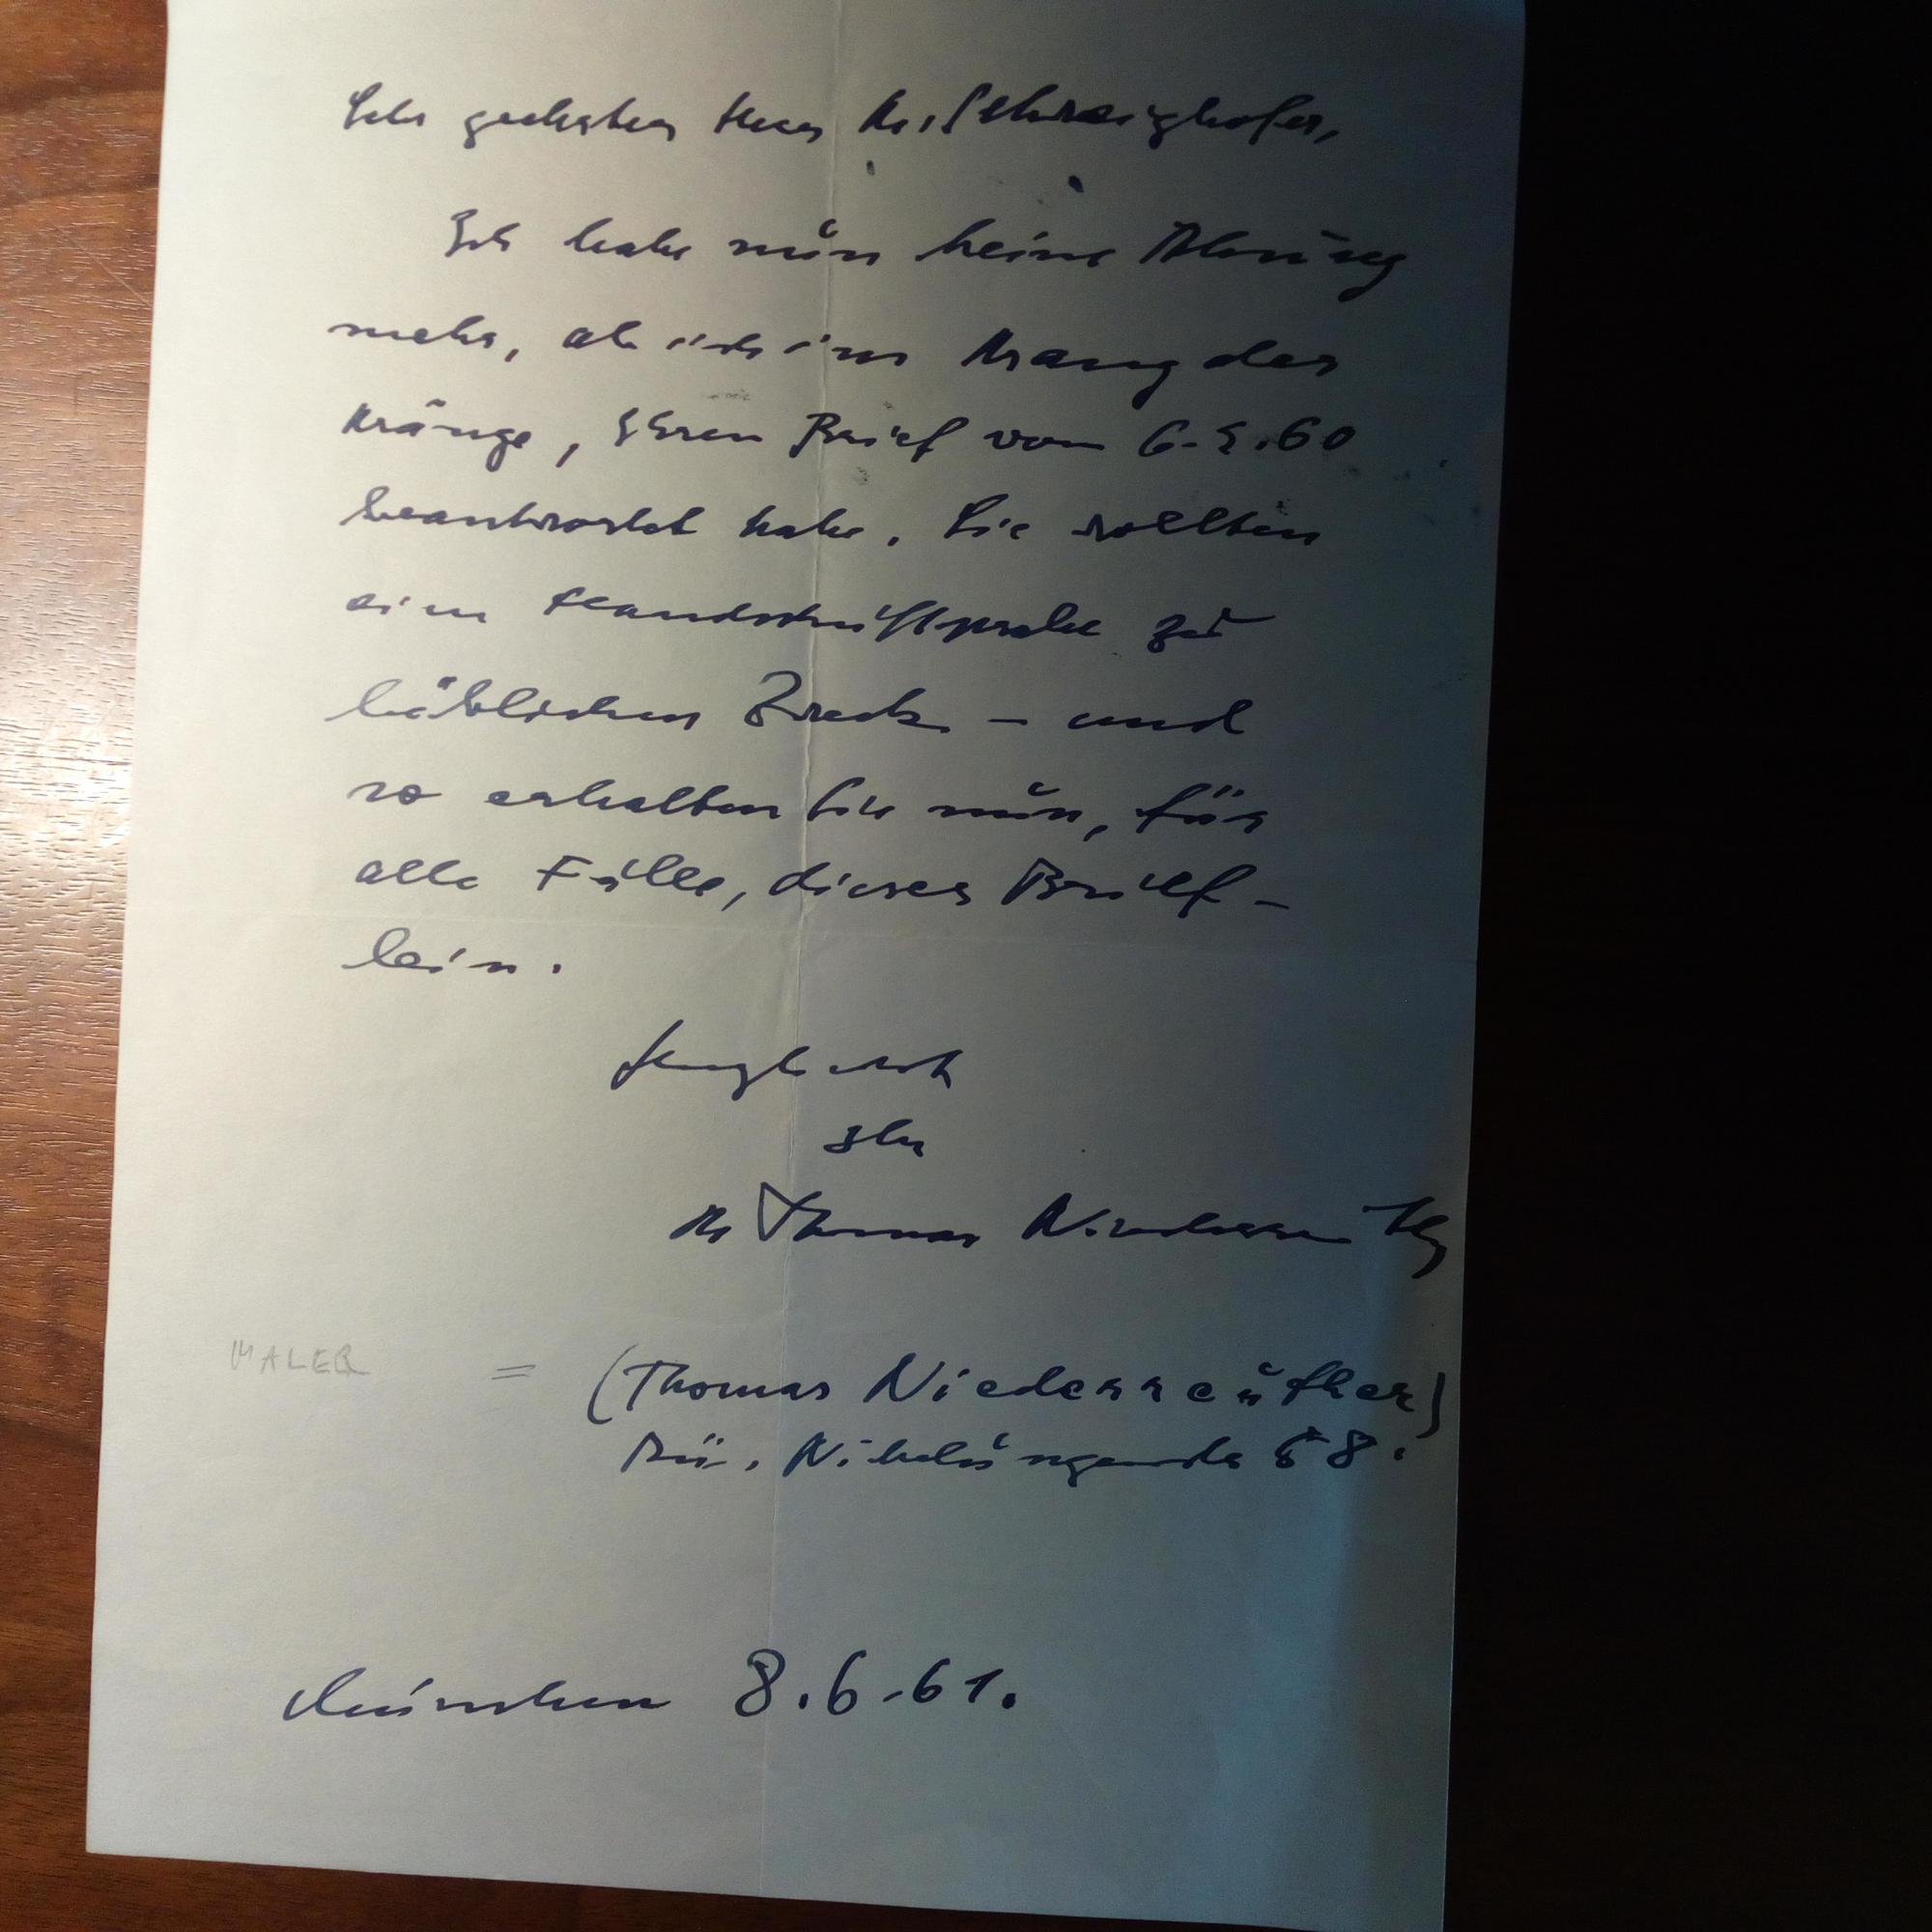 Sehr geehrter Herr Dr. Schweighofer,
Ich habe nun keine Ahnung
mehr, ob ich im Drang der
Dränge, Ihren Brief vom 6.5.60
beantwortet habe. Sie wollten
eine Handschriftprobe zu
löblichem Zweck – und
so erhalten Sie nun, für
alle Fälle, dieses Brief-
lein.
Ihr
Dr Thomas Niederreuther
MALER = (Thomas Niederreuther)
Mü. Nibelungenstr 68.
München 8.6.61.